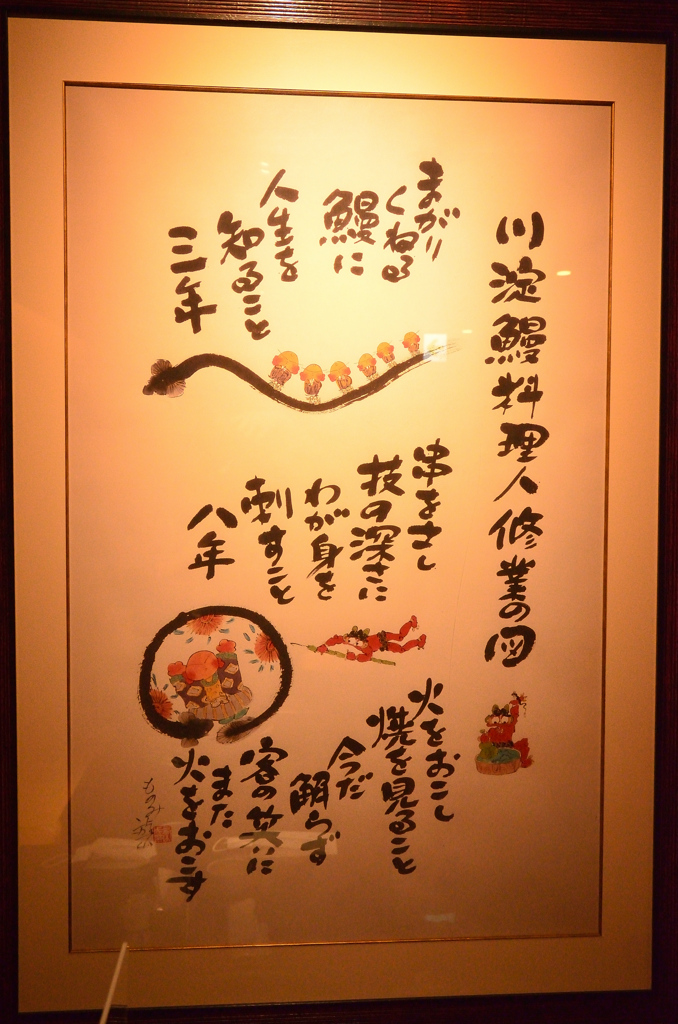 川淀鰻料理人修業の図
まがり
くねる
鰻に
人生を
知ること
三年
串をさし
技の深さに
わが身を
刺すこと
八年
火をおこし
焼を見ること
今だ
解らず
客の笑に
また
火をおこす